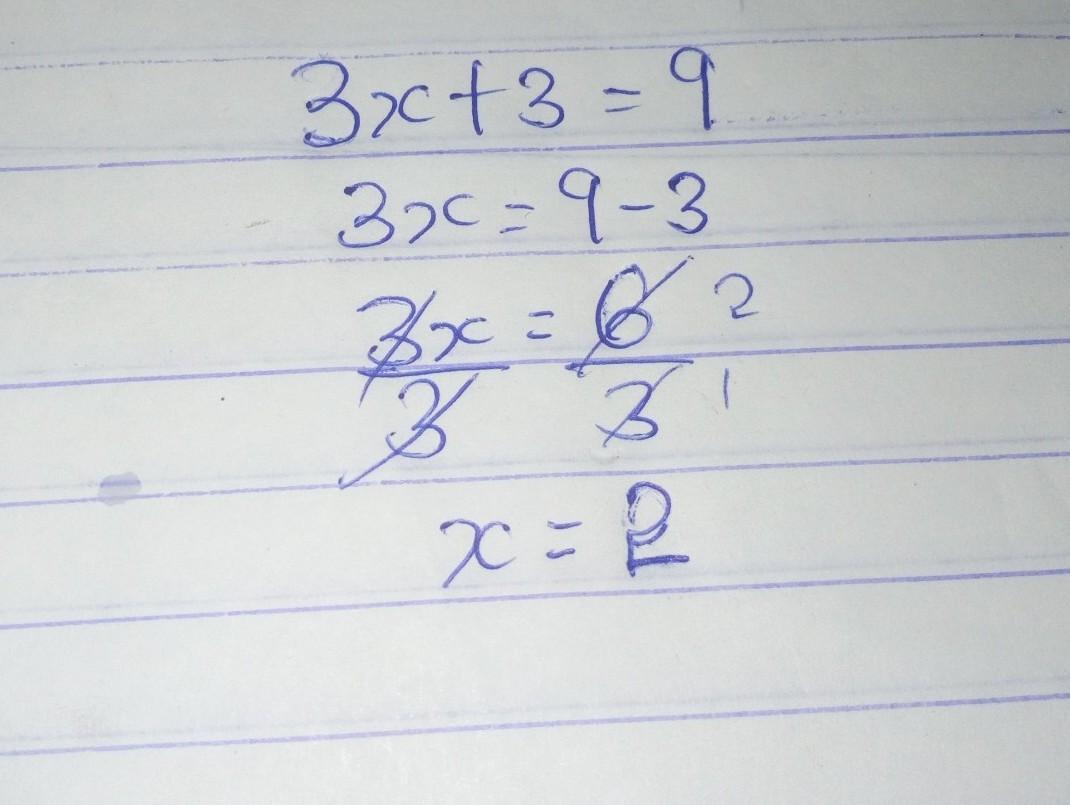 3x+3 = 9
3x = 9-3
3x = 6 2
3 3 1
x = 2